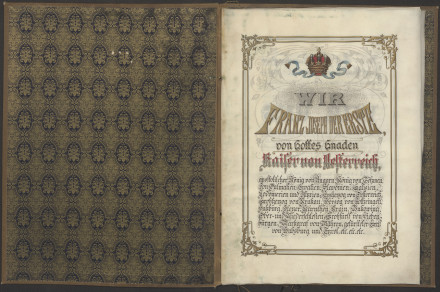 WIR
FRANZ JOSEPH DER ERSTE,
von Gottes Gnaden
Kaiser von Oesterreich,
apostolischer König von Ungarn, König von Böhmen,
von Dalmatien, Croatien, Slavonien, Galizien,
Lodomerien und Illyrien, Erzherzog von Oesterreich,
Großherzog von Krakau, Herzog von Lothringen,
Salzburg, Steyer, Kärnthen, Krain, Bukowina,
Ober- und Niederschlesien, Großfürst von Sieben-
bürgen, Markgraf von Mähren, gefürsteter Graf
von Habsburg und Tirol, etc. etc. etc.